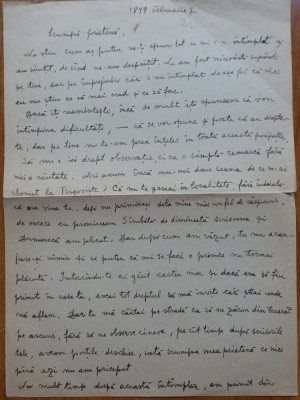 1899 Februarie 7
Scumpă prietenă.
Nu știu cum aș putea să-ți spun tot ce mi s-a întîmplat și
am simțit, de cînd ne-am despărțit. Le-am fost nicăieri supărat
pe tine, dar pe împrejurări căci s-au întîmplat de așa fel că nici
eu nu știu ce să mai cred și ce să fac.
Dacă îți reamintești, încă de mult îți spusesem că vom
întîmpina dificultăți, — că se vor opune și poate că au drepta-
te, dar pe tine nu te-am prea înțeles în toată această
Să nu o iei drept observație, ci ca o simplă remarcă fără
nici o răutate. Nici acum încă nu-mi dau seama de ce m-ai
chemat la Tîrgoviște? Că nu te găseai în localitate, fără îndoia-
lă era vina ta, deși nu primiseși dela mine nici un fel de răspuns,
de oarece eu promisesem Sîmbăta de dimineață scrisoarea și
Duminecă am plecat. Dar după cum am văzut, tu nu aran-
jaseși nimic și se putea să mi se facă o primire nu tocmai
plăcută. Întorcîndu-te ai găsit cartea mea și dacă era să fiu
primit în casa ta, aveai tot dreptul să mă inviți căci știai unde
mă aflam. Dar tu mă căutai pe stradă ca să ne zărim din trecăt
pe ascuns, fără să ne observe cineva, pe cît timp după scrierile
tale, aveam porțile deschise, iată scumpa mea prietenă ce nici
pînă azi nu am priceput
Cu mult timp după această întîmplare, am primit din